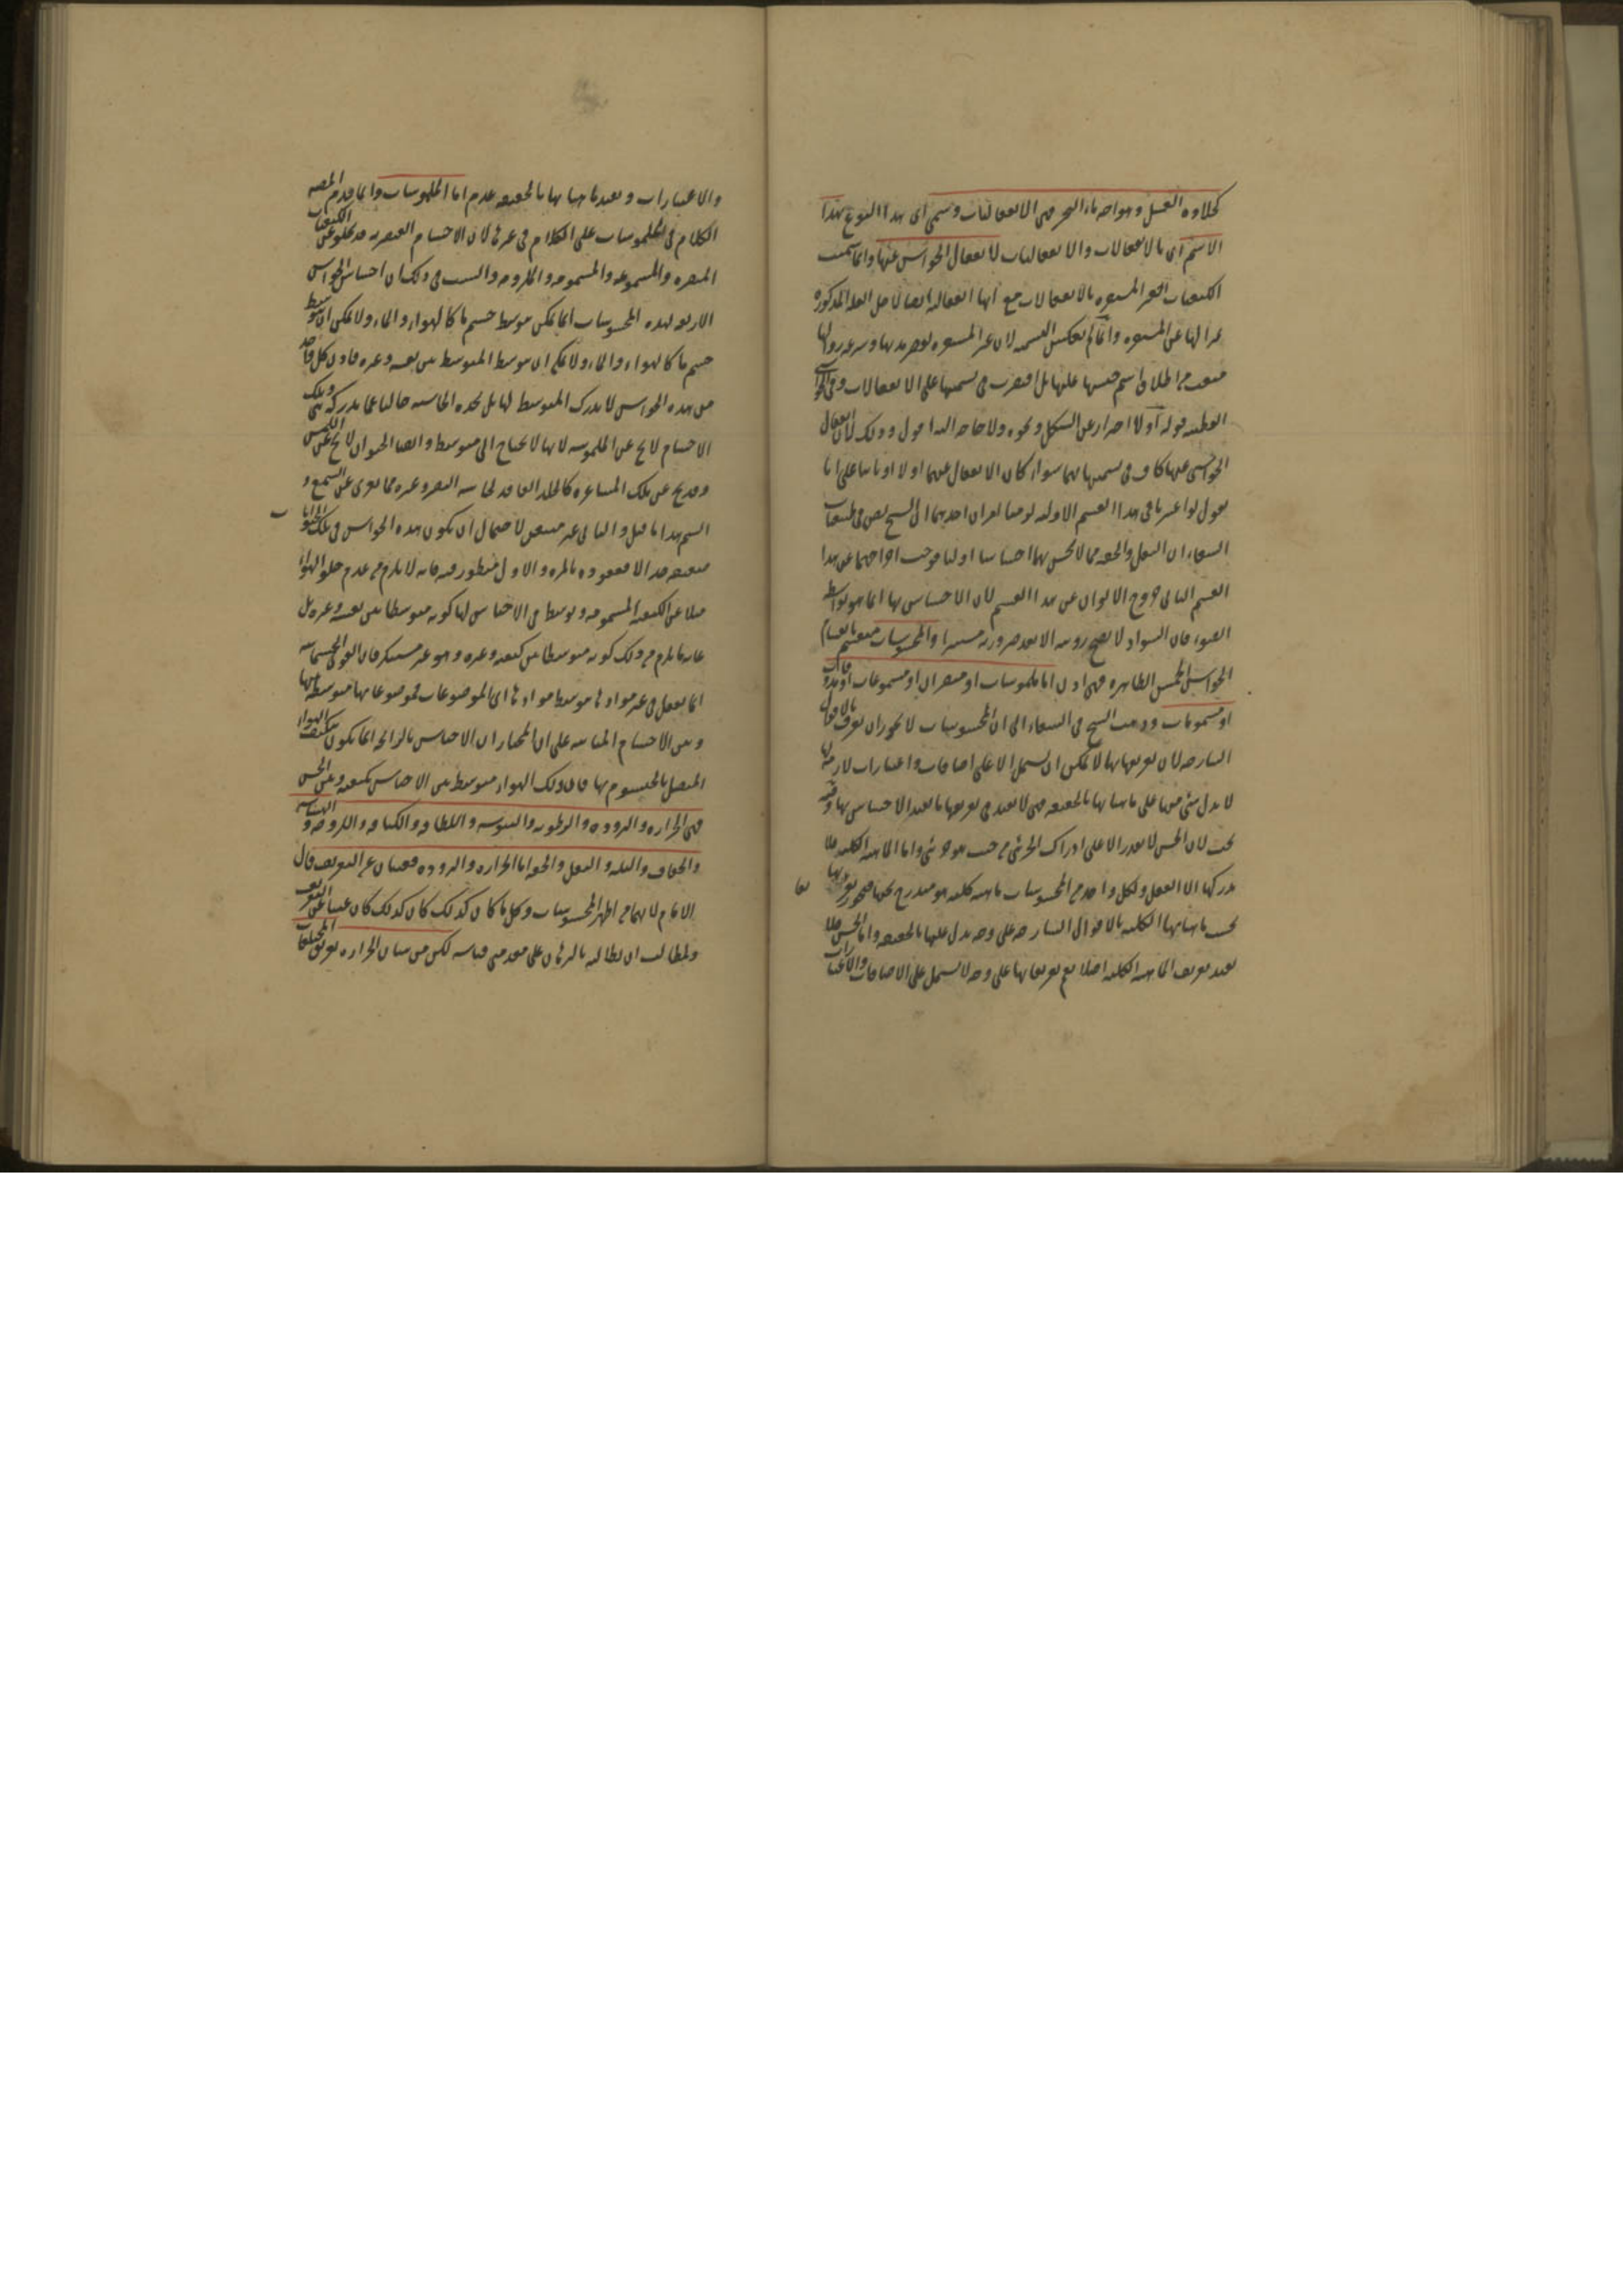 كحلاوة العسل وملوحة ماء البحر فهي الانفعاليات وسمي اي هذا النوع بهذا
الاسم اي بالانفعالات والانفعاليات لانفعال الحواس عنها وانما سميت
الكيفيات الغير المستقرة بالانفعالات مع انها انفعالية ايضا لاجل العلة المذكورة
تميزا لها عن المستقرة وانما لم يعكس التسمية لان غير المستقرة لقصر مدتها وسرعة زوالها
منعت من اطلاق اسم جنسها عليها بل اقتصرت في تسميتها على الانفعالات وفي الحواشي
القطبية قوله اولا احتراز عن الشكل ونحوه ولا حاجة اليه اقول وذلك لان انفعال
الحواس عنها كاف في تسميتها بهما سواء كان الانفعال عنهما اولا او ثانيا على انا
نقول لو اعتبرنا في هذا القسم الاولية لوجب امران احدهما ان الشيخ نص في طبيعيات
الشفاء ان الثقل والخفة مما لا يحس بهما احساسا اوليا فوجب اخراجهما عن هذا
القسم الثاني خروج الالوان عن هذا القسم لان الاحساس بها انما هو بواسطة
الضوء فان السواد لا يصح رؤيته الا بعد صيرورته مستنيرا والمحسوسات منقسمة بانقسام
الحواس الخمس الظاهرة فهي اذن اما ملموسات او مبصرات او مسموعات او مذوقات
او مشمومات وذهب الشيخ في الشفاء الى ان المحسوسات لا يجوز ان تعرف بالاقوال
الشارحة لان تعريفها بها لا يمكن ان يشتمل الا على اضافات واعتبارات لازمة لها
لا يدل شيء منها على ماهياتها بالحقيقة فهي لا تفيد في تعريفها ما يفيد الاحساس بها وفيه
بحث لان الحس لا يقدر الا على ادراك الجزئي من حيث هو جزئي واما الماهية الكلية فلا
يدركها الا العقل ولكل واحد من المحسوسات ماهية كلية هو مندرج تحتها فيجوز تعريفها
بحسب ماهياتها الكلية بالاقوال الشارحة على وجه يدل عليها بالحقيقة واما الحس فلا
يفيد تعريف الماهية الكلية اصلا مع تعريفاتها على وجه لا يشتمل على الاضافات والاعتبارات
والاعتبارات ويفيد ماهياتها بالحقيقة عدم اما الملموسات وانما قدم المصنف
الكلام في الملموسات على الكلام في غيرها لان الاجسام العنصرية قد تخلو عن الكيفيات
المبصرة والمسموعة والمشمومة والمذوقة والسبب في ذلك ان احساس الحواس
الاربعة لهذه المحسوسات انما يمكن بتوسط جسم ما كالهواء والماء ولا يمكن ان يتوسط
جسم ما كالهواء والماء ولا يمكن ان يتوسط المتوسط بين نفسه وغيره فاذن كل واحد
من هذه الحواس لا يدرك المتوسط لها بل تجده الحاسة خاليا عما يدركه بتلك
الاجسام لا تخلو عن الملموسة لانها لا تحتاج الى متوسط وايضا الحيوان لا يخلو عن اللمس
وقد يخلو عن تلك المشاعر كالخلد الفاقد لحاسة البصر وغيره مما يعرى عن السمع و
الشم هذا ما قيل والثاني غير متيقن لاحتمال ان يكون هذه الحواس في تلك الحيوانات
ضعيفة جدا لا مفقودة بالمرة والاول منظور فيه فانه لا يلزم من عدم خلو الهواء
مثلا عن الكيفية المشمومة وتوسطه في الاحساس لها كونه متوسطا بين نفسه وغيره بل
غاية ما يلزم من ذلك كونه متوسطا بين كيفيته وغيره وهو غير مستنكر فان القوى الجسمانية
انما تفعل في غير موادها بتوسط موادها اي الموضوعات فموضوعاتها متوسطة بينها
وبين الاجسام المباينة على ان المختار ان الاحساس بالرائحة انما يكون بتكيف الهواء
المتصل بالخيشوم بها فان ذلك الهواء متوسط بين الاحساس بكيفيته وبين الحس
فهي الحرارة والبرودة والرطوبة واليبوسة واللطافة والكثافة واللزوجة والهشاشة
والجفاف والبلة والثقل والخفة اما الحرارة والبرودة فغنيتان عن التعريف قال
الامام لانهما من اظهر المحسوسات وكل ما كان كذلك كان غنيا عن التعريف
ولمطالب ان يطالبه بالبرهان على مقدمتي قياسه لكن من شان الحرارة تفريق المختلفات